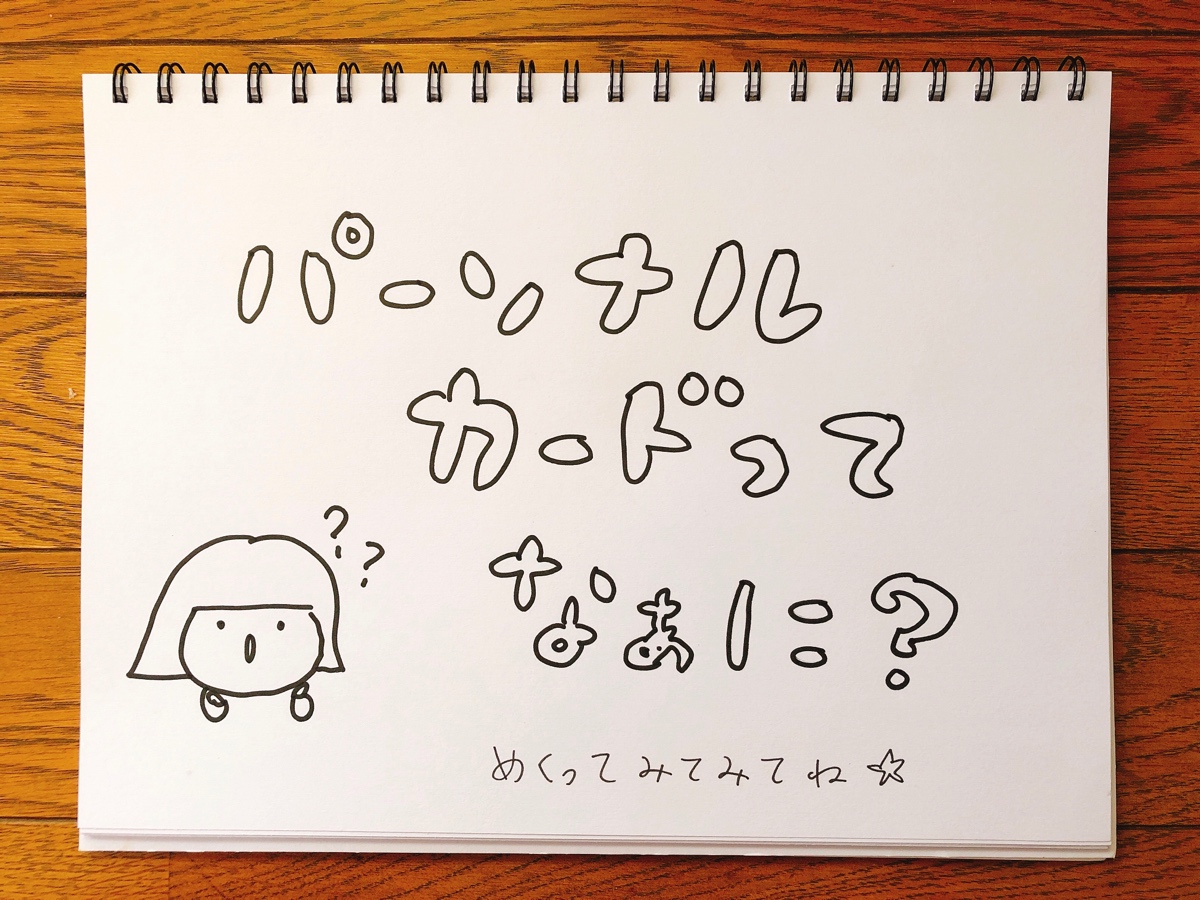 パーソナル
カードって
なぁに?
??
めくってみてみてね☆